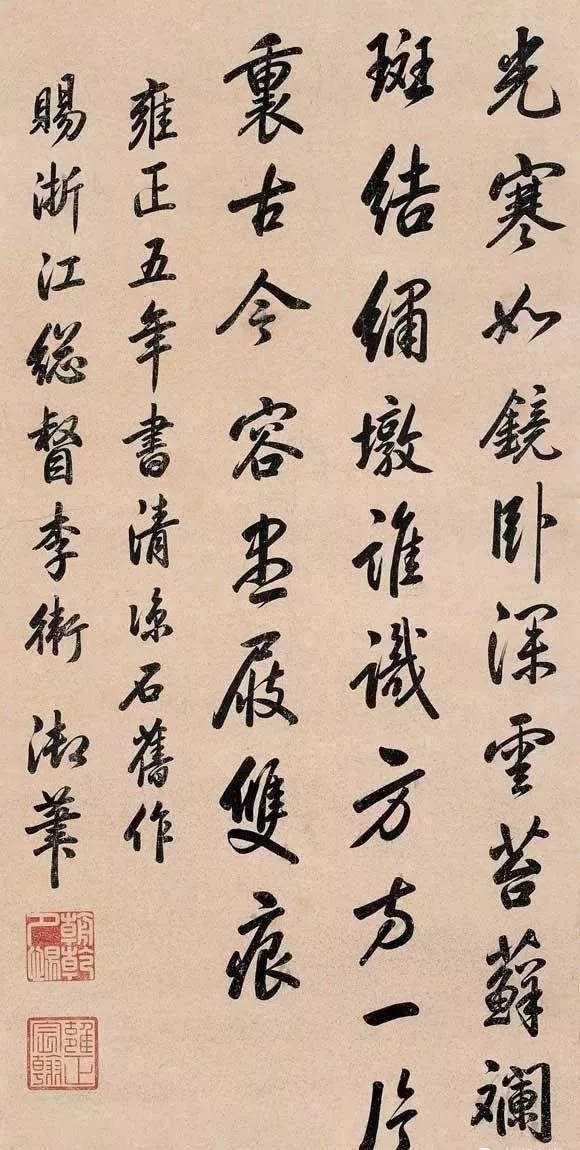 光寒如鏡卧深雲苔蘚斕
斑結繡墩誰識方方一片
裏古今容盡屐雙痕
雍正五年書清涼石舊作
賜浙江總督李衛 御筆
朝乾夕惕
雍正宸翰